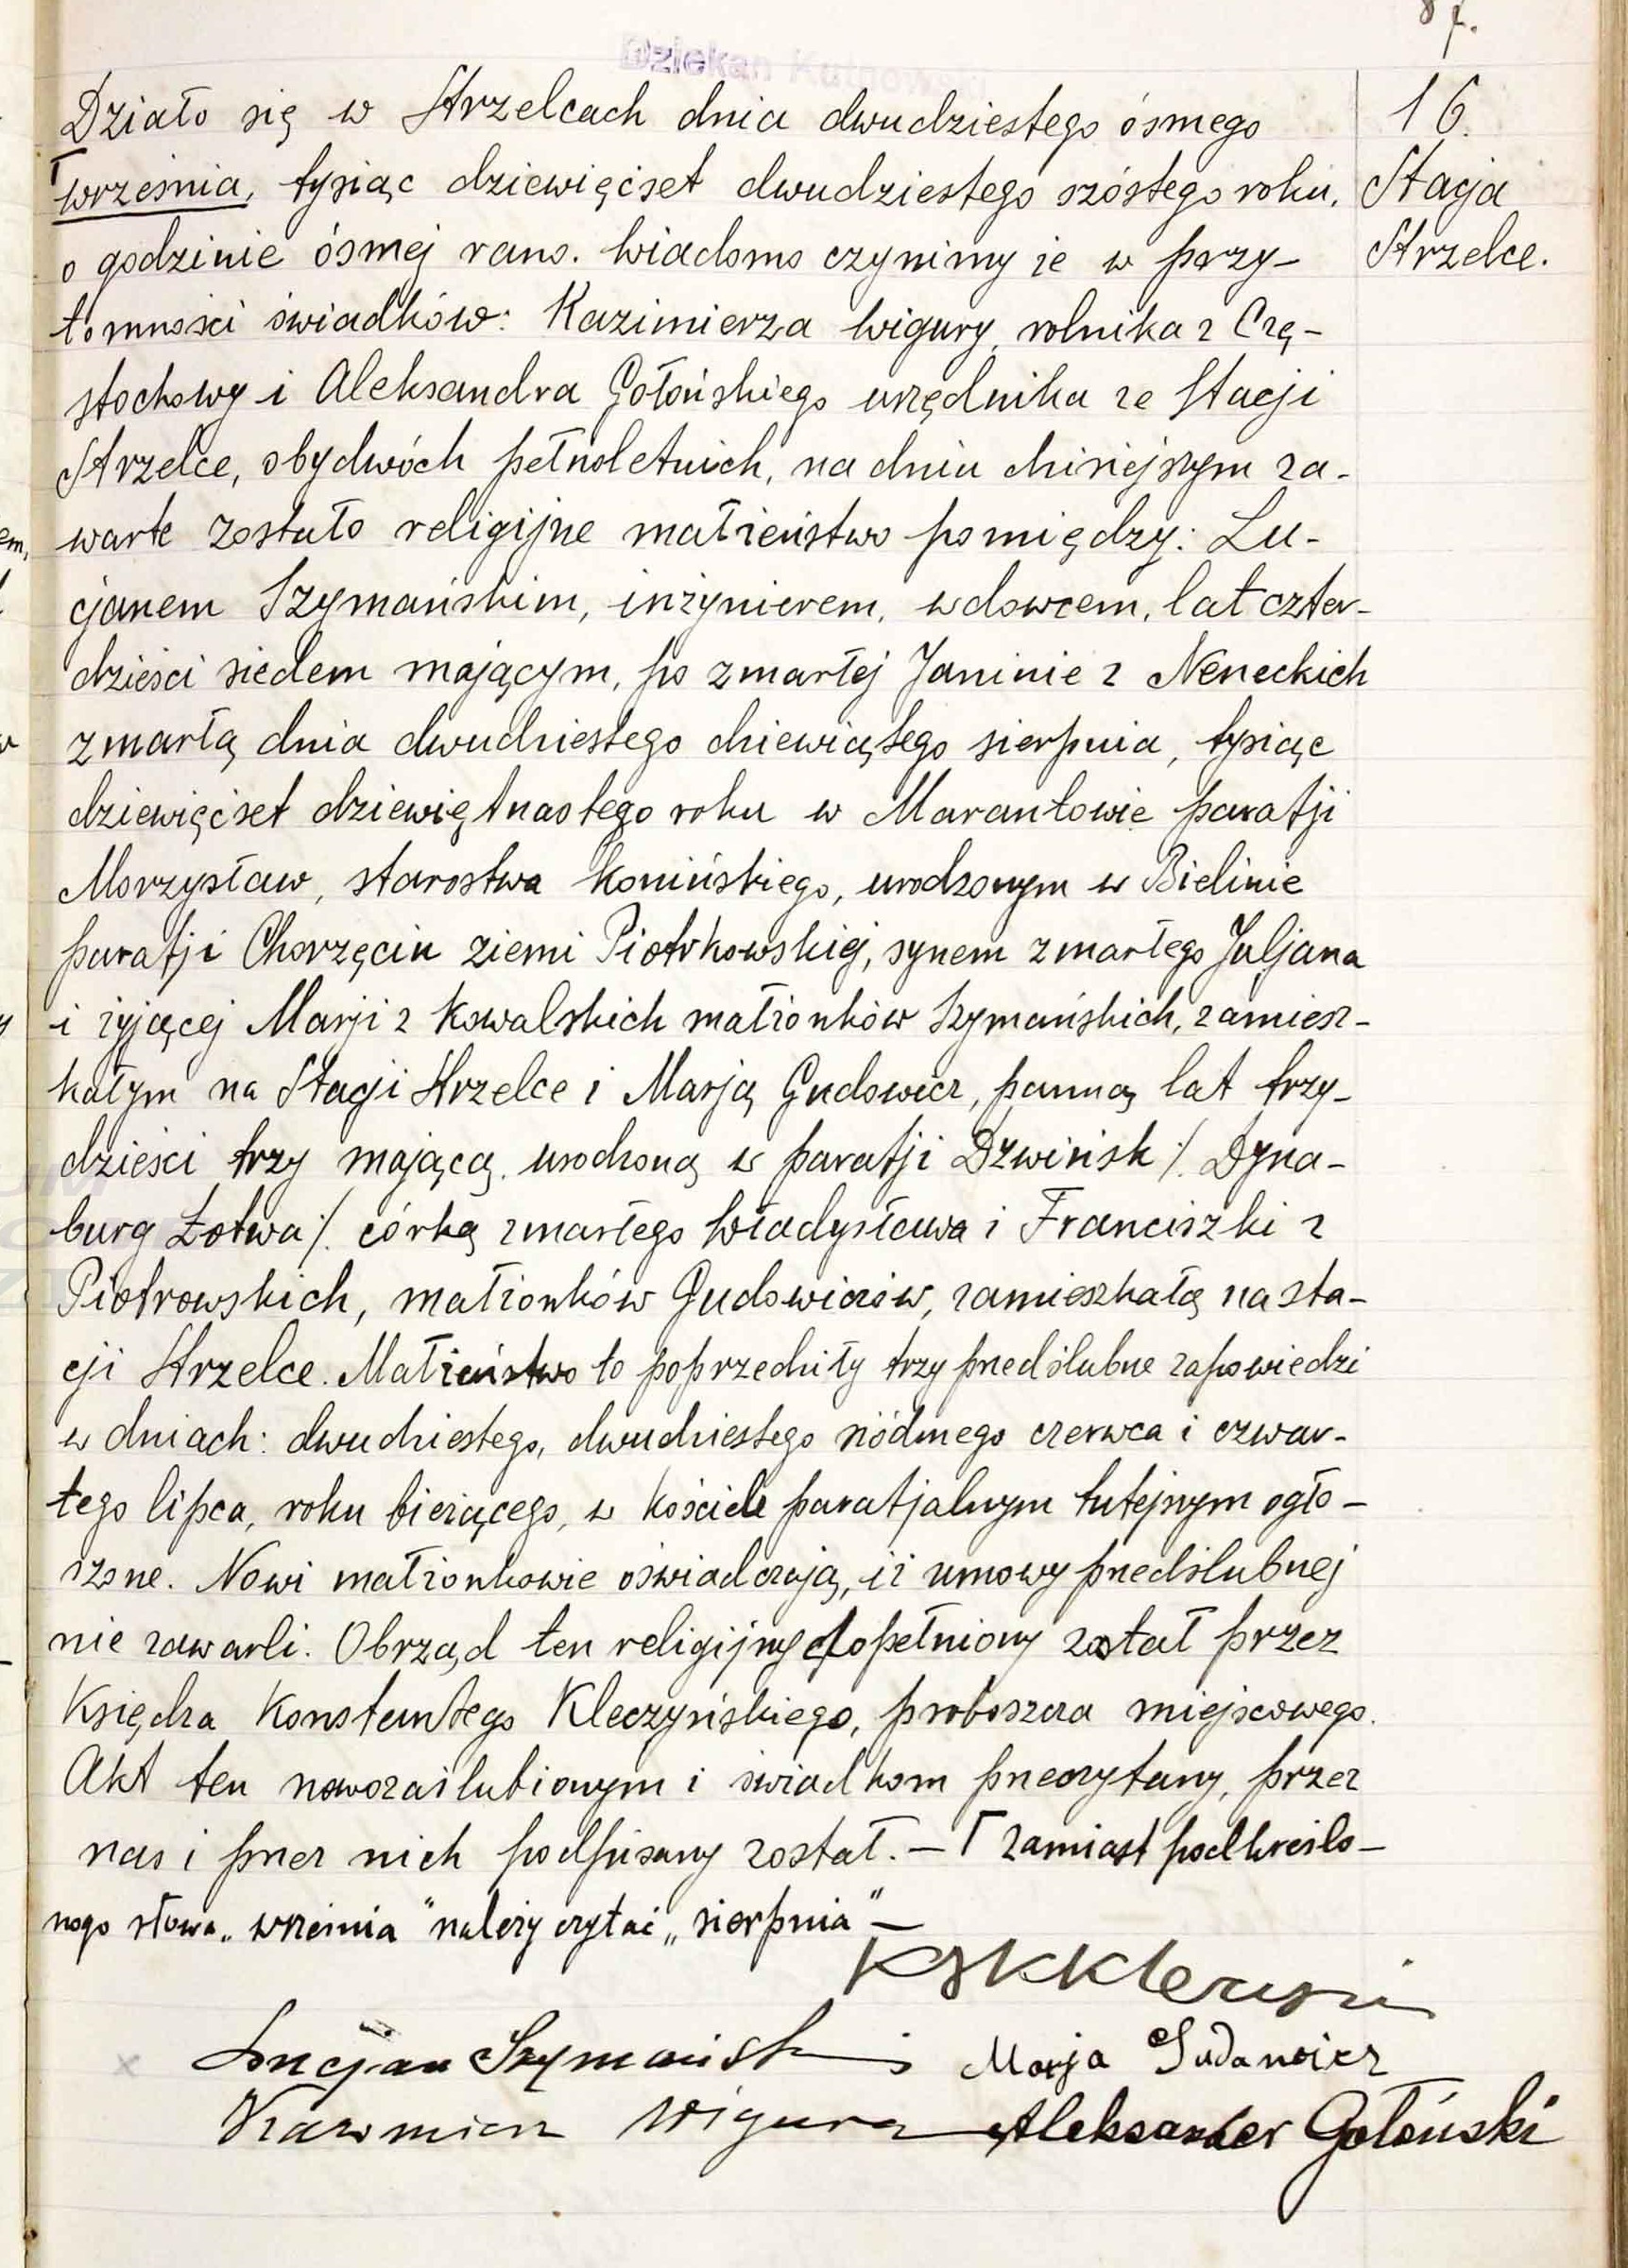 87.
Dziekan Kutnowski
Działo się w Strzelcach dnia dwudziestego ósmego
16.
Γ września, tysiąc dziewięćset dwudziestego szóstego roku,
Stacja
o godzinie ósmej rano. Wiadomo czynimy że w przy-
Strzelce.
tomności świadków: Kazimierza Wigury, rolnika z Czę-
stochowy i Aleksandra Gołońskiego urzędnika ze Stacji
Strzelce, obydwóch pełnoletnich, na dniu dzisiejszym za-
warte zostało religijne małżeństwo pomiędzy: Lu-
cjanem Szymańskim, inżynierem, wdowcem, lat czter-
dzieści siedem mającym, po zmarłej Janinie z Neneckich
zmarłą dnia dwudziestego dziewiątego sierpnia, tysiąc
dziewięćset dziewiętnastego roku w Marantowie parafji
Morzysław, starostwa Konińskiego, urodzonym w Bielinie
parafji Chorzęcin ziemi Piotrkowskiej, synem zmarłego Juljana
i żyjącej Marji z Kowalskich małżonków Szymańskich, zamiesz-
kałym na Stacji Strzelce i Marją Gudowicz, panną lat trzy-
dzieści trzy mającą, urodzoną w parafji Dźwińsk /. Dyna-
burg Łotwa /. córką zmarłego Władysława i Franciszki z
Piotrowskich, małżonków Gudowiczów, zamieszkałą na sta-
cji Strzelce. Małżeństwo to poprzedziły trzy przedślubne zapowiedzi
w dniach: dwudziestego, dwudziestego siódmego czerwca i czwar-
tego lipca, roku bieżącego, w kościele parafjalnym tutejszym ogło-
szone. Nowi małżonkowie oświadczają, iż umowy przedślubnej
nie zawarli. Obrząd ten religijny dopełniony został przez
Księdza Konstantego Kleczyńskiego, proboszcza miejscowego.
Akt ten nowozaślubionym i świadkom przeczytany, przez
nas i przez nich podpisany został. – Γ zamiast podkreślo-
nego słowa „września" należy czytać „sierpnia" –
Lucjan Szymański Marja Gudowicz
Kazimierz Wigura Aleksander Gołoński